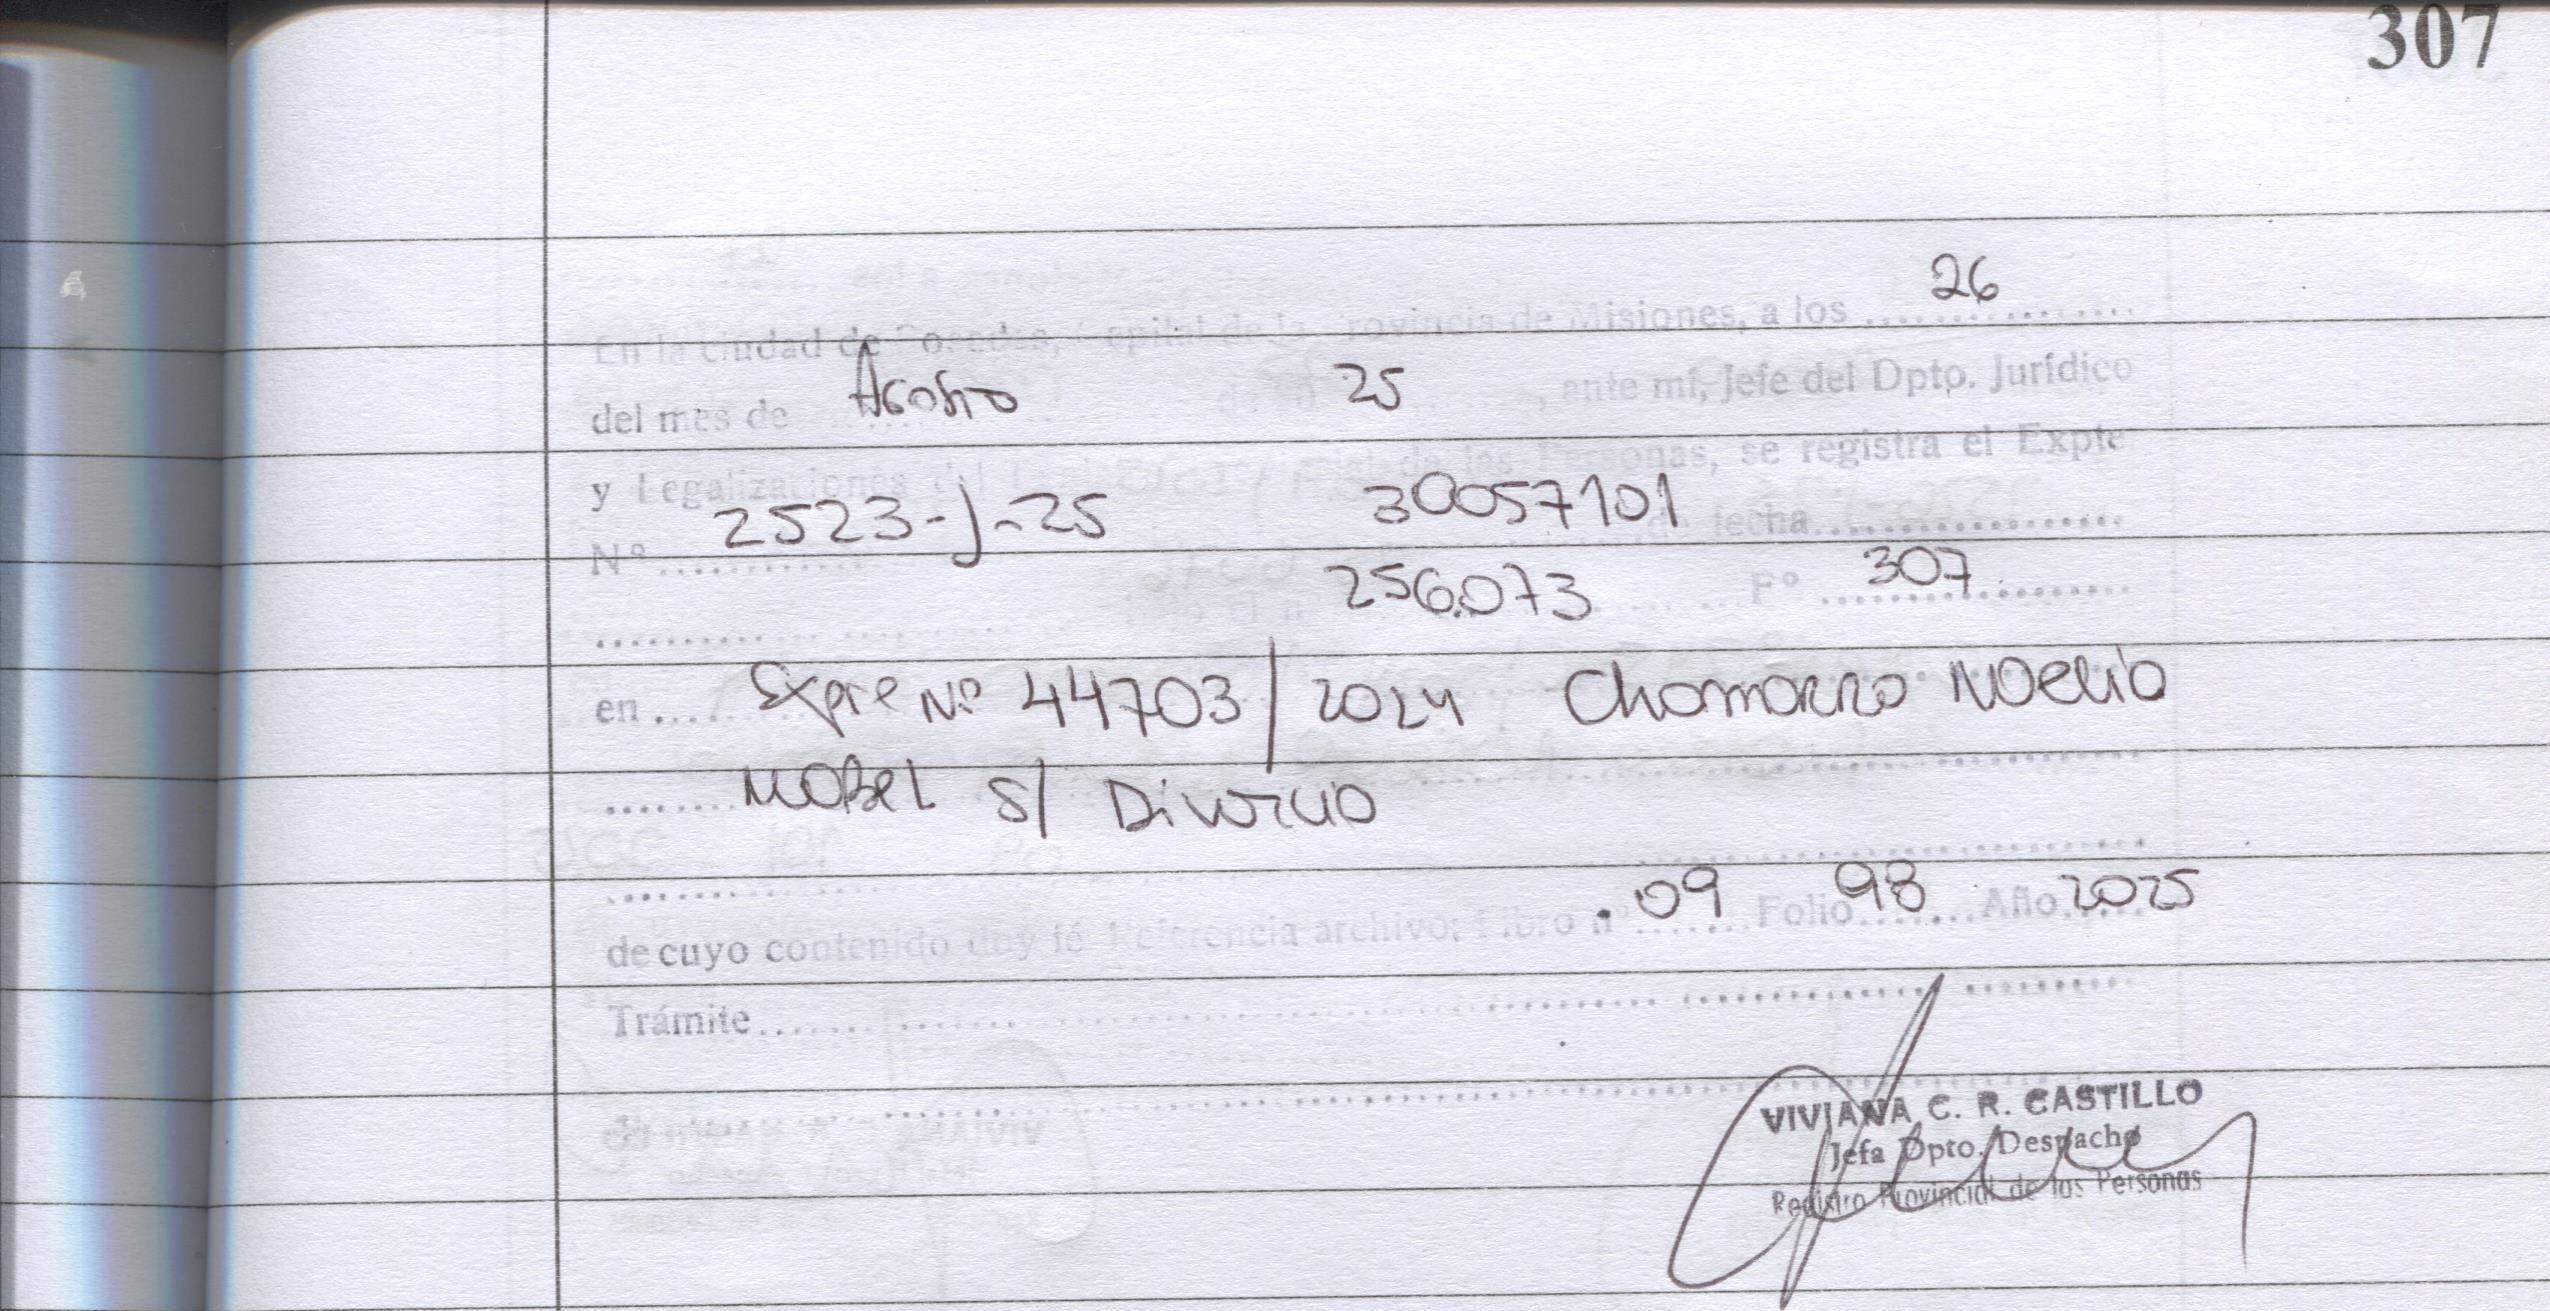 307
26
En la ciudad de Posadas, Capital de la Provincia de Misiones, a los ................
del mes de Agosto 25, ante mí, Jefe del Dpto. Jurídico
y Legalizaciones del de las Personas, se registra el Expte
Nº 2523-J-25 30057101 de fecha
256.073 Fº 307
en Expte Nº 44703/2024 Chamorro Noelia
Mabel S/ Divorcio
de cuyo contenido doy fé Referencia archivo: Libro nº 09 Folio 98 Año 2025
Trámite
VIVIANA C. R. CASTILLO
Jefa Dpto. Despacho
Registro Provincial de las Personas